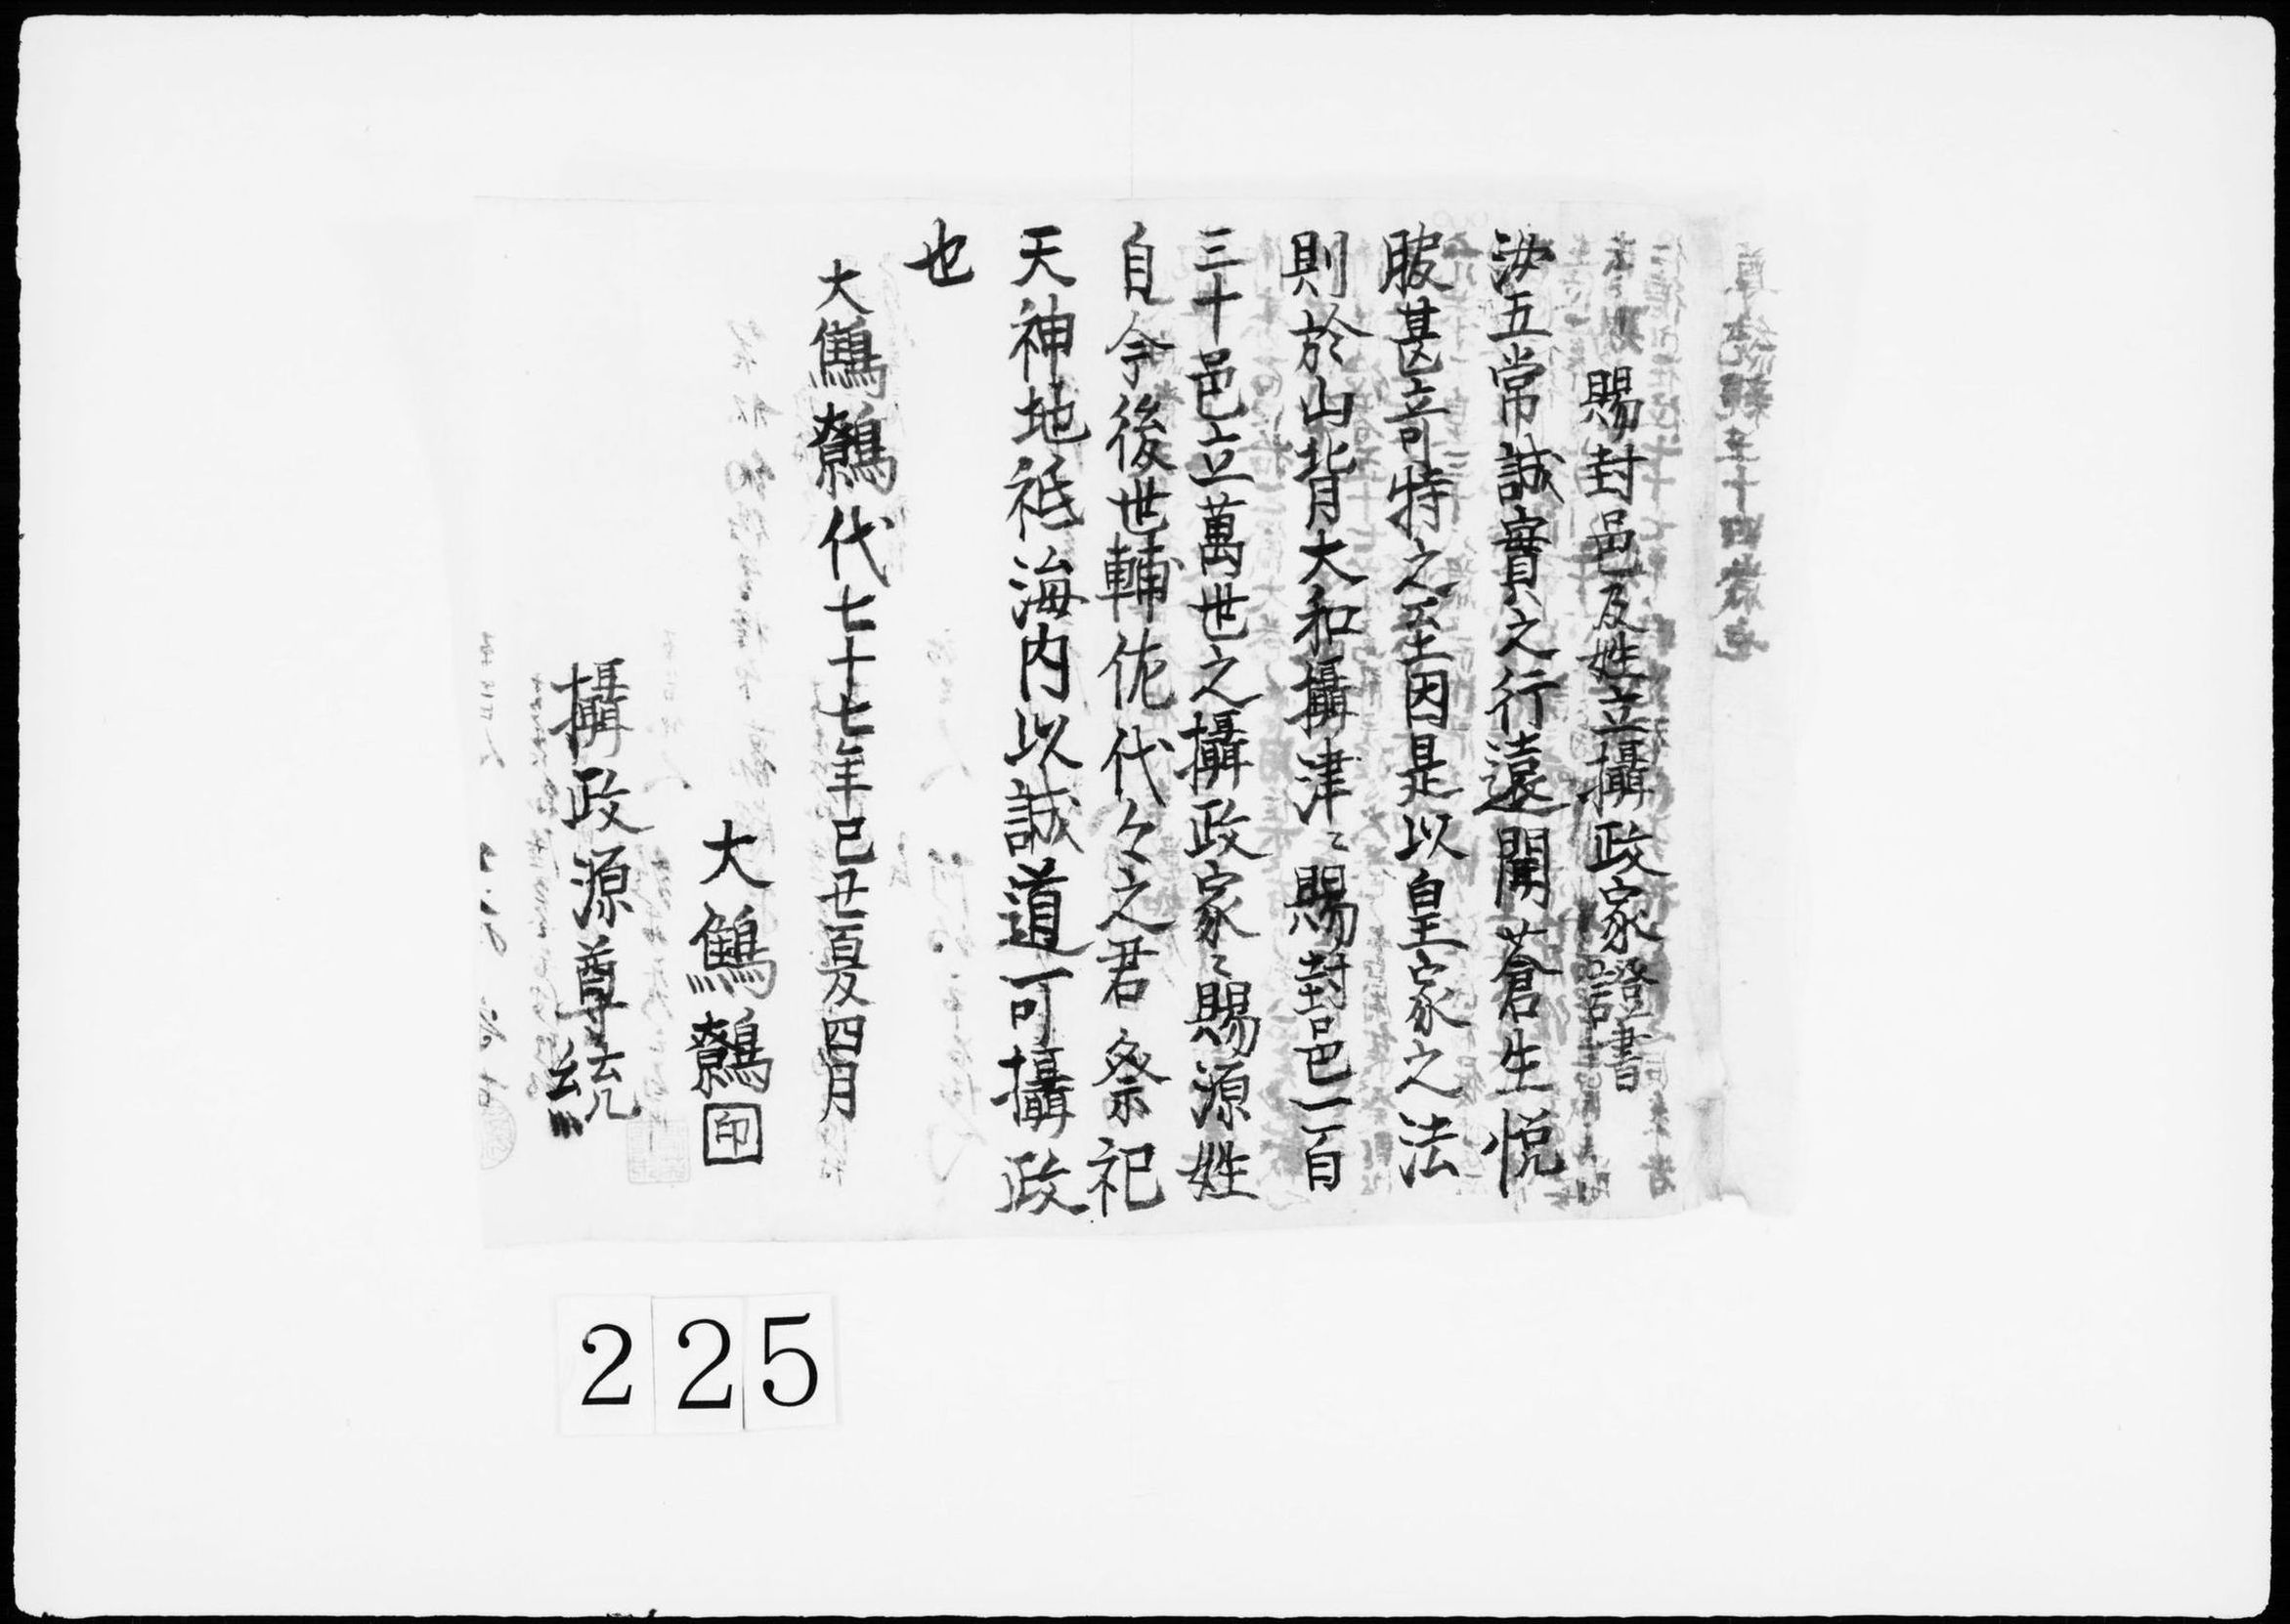 賜封邑及姓立攝政家證書
汝五常誠實之行遠聞蒼生悦
服甚奇特之至因是以皇家之法
則於山背大和攝津〻賜封邑一百
三十邑立萬世之攝政家〻賜源姓
自今後世輔佐代々之君祭祀
天神地祇海内以誠道可攝政
也
大鷦鷯代七十七年己丑夏四月
大鷦鷯印
攝政源尊統
225